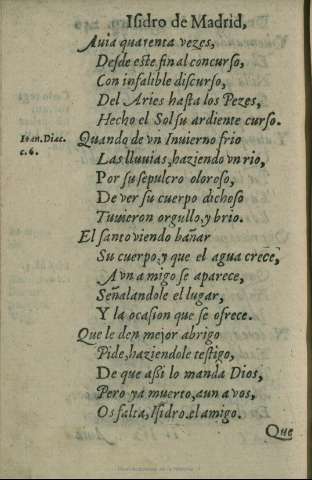 Isidro de Madrid,
Auia quarenta vezes,
Desde este final concurso,
Con infalible discurso,
Del Aries hasta los Pezes,
Hecho el Sol su ardiente curso.
Ioan. Diac.
c. 6.
Quando de vn Inuierno frio
Las lluuias, haziendo vn rio,
Por su sepulcro oloroso,
De ver su cuerpo dichoso
Tuuieron orgullo, y brio.
El santo viendo bañar
Su cuerpo, y que el agua crece,
A vn amigo se aparece,
Señalandole el lugar,
Y la ocasion que se ofrece.
Que le den mejor abrigo
Pide, haziendole testigo,
De que assi lo manda Dios,
Pero ya muerto, aun a vos,
Os falta, Isidro, el amigo.
Que